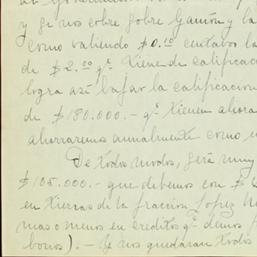 y si nos cobre sobre Gamón y la
como valiendo $0.10 centabos la
de $2.00 qe. tienen de calificac
logra asi bajar la calificacion
de $180.000.- qe tienen ahora
ahorraremos anualmente como u
De todos modos, será muy
$105.000.- que debemos con $
en tierras de la fracción Lopez
mas o menos en creditos qe. demos
bonos).- Je nos quedaran todos